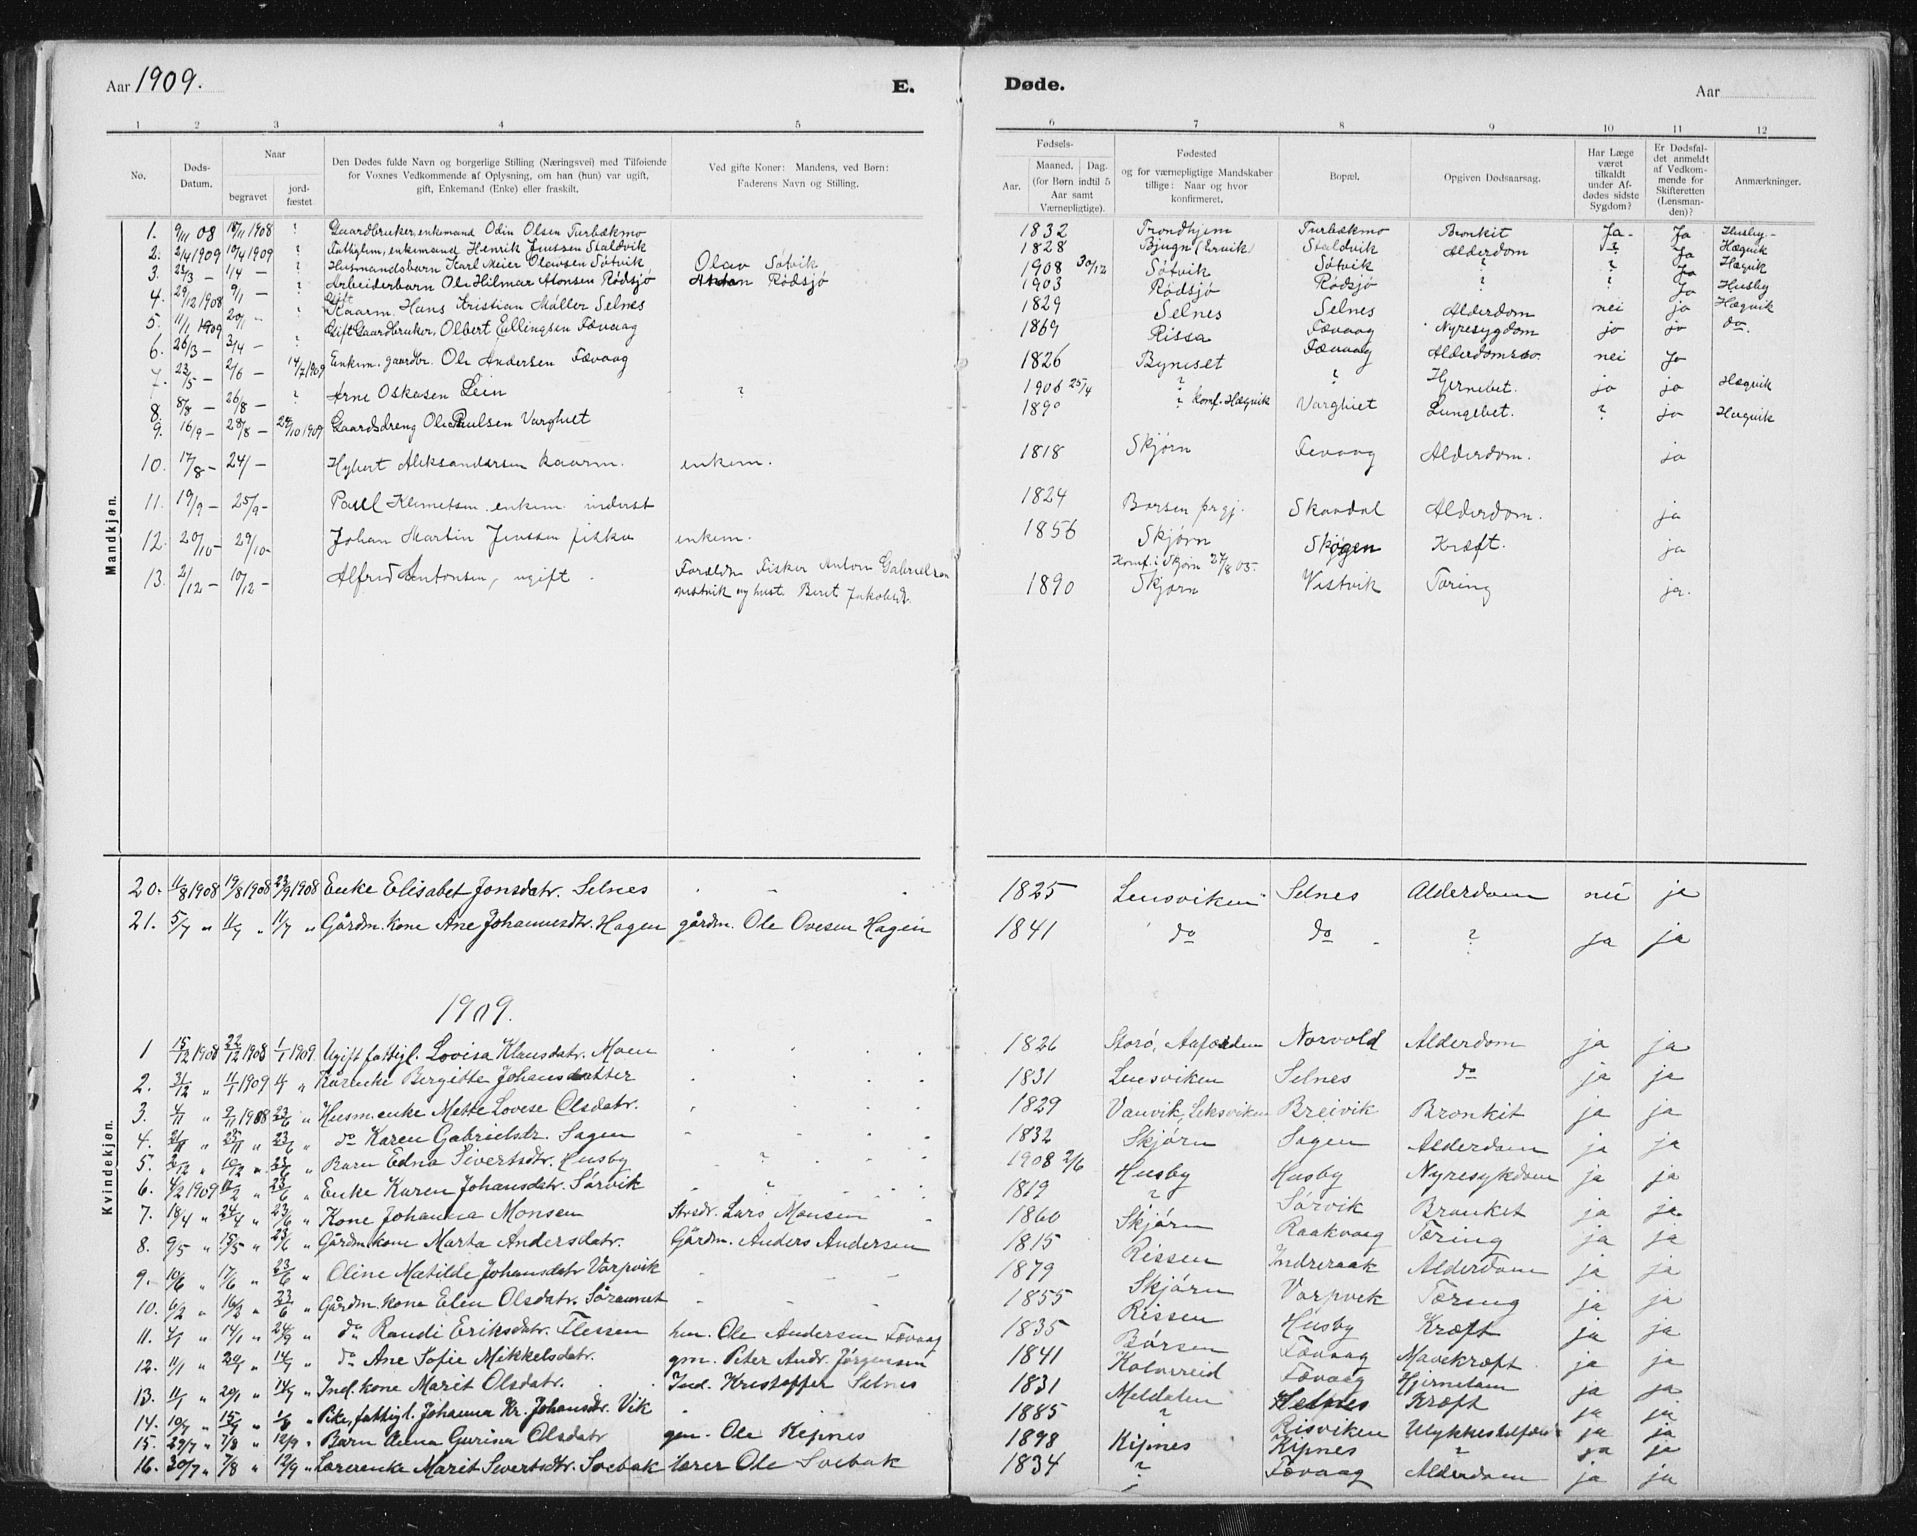 Aar 1909. E. Døde. Aar
1 2 3 4 5 6 7 8 9 10 11 12
No. Døds-Datum. Naar begravet jordfæstet Den Dødes fulde Navn og borgerlige Stilling (Næringsvei) med Tilføiende for Voxnes Vedkommende af Oplysning, om han (hun) var ugift, gift, Enkemand (Enke) eller fraskilt. Ved gifte Koner: Mandens, ved Børn: Faderens Navn og Stilling. Fødsels- Aar. Maaned. Dag. (for Børn indtil 5 Aar samt Værnepligtige). Fødested og for værnepligtige Mandskaber tillige: Naar og hvor konfirmeret. Bopæl. Opgiven Dødsaarsag. Har Læge været tilkaldt under Afdødes sidste Sygdom? Er Dødsfaldet anmeldt af Vedkommende for Skifteretten (Lensmanden)? Anmærkninger.
Mandkjøn.
1. 9/11 08 18/11 1908 ? Gaardbruker, enkemand Odin Olsen Turbækmo 1832 Trondhjem Turbækmo Bronkit Ja Ja Husby
2. 2/4 1909 10/4 1909 ? Fattiglem, enkemand Henrik Jenssen Staldvik 1828 Bjugn (Ervik) Staldvik Alderdom ? Ja Hægvik
3. 1/4 – ? Husmandsbarn Karl Meier Olavsen Søtvik Olav Søtvik 1908 30/12 Søtvik Søtvik ? ? Ja Hægvik
4. 29/12 1908 9/1 – ? Arbeiderbarn Ole Hilmar Antonsen Rødsjø Anton Rødsjø 1903 Rødsjø Rødsjø ? ? Ja Husby
5. 11/1 1909 20/1 ? Gift Kaarm. Hans Kristian Møller Selnes 1829 Selnes Selnes Alderdom nei ja Hægvik
6. 26/3 – 3/4 – ? Gift Gaardbruker, Olbert Ellingsen Fævaag 1869 Rissa Fævaag Nyresygdom ja ja do.
7. 23/5 – 2/6 – 14/7 1909 Enkem. gaardbr. Ole Andersen Fævaag 1826 Byneset Fævaag nei Ja
8. 8/8 – 26/8 – ? Arne Oskasen Lein ? 1906 25/4 ? ? Hjernebet. ja ja Hægvik
9. 16/9 – 28/8 – 24/10 1909 Gaardsdreng Ole Paulsen Varghiet 1890 ? konf. Hægvik Varghiet Lungebet. ? ja Hægvik
10. 17/8 – 24/ – Hybert Aleksandersen kaarm. enkem. 1818 Skjørn Fevaag Alderdom. ja
11. 19/9 – 25/9 – Paul Klemetsen enkem. inderst 1824 Børsen prgj. Skaudal Alderdom. ja
12. 20/10 – 29/10 – Johan Martin Jenssen fisker enkem. 1856 Skjørn Skøgen Kræft. ja
13. 2/12 – 10/12 – Alfred Antonsen, ugift. Forældre Fisker Anton Gabrielsen 1890 Konf. i Skjørn 27/8 05. Skjørn Vistvik Tæring ja.
vistvik og hust. Beret Jakobsd.
Kvindekjøn.
20. 11/8 1908 19/8 1908 23/9 1908 Enke Elisabet Jonsdatr. Selnes 1825 Lensviken Selnes Alderdom nei ja
21. 5/7 „ 11/7 „ 11/7 „ Gårdm. kone Ane Johannesdtr. Hagen gårdm. Ole Ovesen Hagen 1841 do do ? ja ja
1909.
1 15/12 1908 22/12 1908 1/1 1909 Ugift fattigl. Lovisa Klausdatr. Moen 1826 Storø, Aafjorden Norvold Alderdom ja ja
2. 31/12 „ 11/1 1909 „ Kårenke Bergitte Johansdatter 1831 Lensviken Selnes do ja ja
3. 4/1 „ 2/1 1908 23/6 „ Husm. enke Mette Lovise Olsdatr. 1829 Vanvik, Leksviken Breivik Bronkit ja ja
4. 23/6 „ do Karen Gabrielsdtr. Sagen 1832 Skjørn Sagen Alderdom ja ja
5. 23/6 „ Barn Edna Sivertsdtr. Husby ? 1908 2/6 Husby Husby Nyresykdom ja ja
6. 4/2 1909 12/2 „ 23/6 „ Enke Karen Johansdatr. Sørvik ? 1819 ? Sørvik Bronket ja ja
7. 18/4 „ 24/4 „ 23/6 „ Kone Johanna Monsen Strsdr. Lars Monsen 1860 Skjørn Raakvaag Tæring ja ja
8. 9/5 „ 15/5 „ 23/6 „ Gårdm. kone Marta Andersdatr. Gårdm. Anders Andersen 1815 Rissen Indreraak Alderdom ja ja
9. 10/6 „ 17/6 „ 23/6 „ Oline Matilde Johansdatr Varpvik 1879 Skjørn Varpvik Tæring ja ja
10. 6/2 „ 16/2 „ 23/6 „ Gårdm. kone Elen Olsdatr. Søraunet 1855 Rissen Husby Kræft ja ja
11. 4/1 „ 14/1 „ 24/9 „ do Randi Eriksdatr. Flessen hm. Ole Andersen Fævaag 1835 Børsen Fævaag Mavekræft ja ja
12. 11/1 „ 20/1 „ 14/7 „ do Ane Sofie Mikkelsdatr. gm. Peter Andr. Jørgensen 1841 Kolvereid Fævaag Hjernelam ja ja
13. 11/1 „ 20/1 „ 14/7 „ Ind. kone Marit Olsdatr. Ind. Kristoffer Selnes 1831 Meldalen Selnes Kræft ja ja
14. 10/7 „ 15/7 „ „ Pike, fattigl. Johanna Kr. Johansdtr. Vik 1885 ? Risviken Ulykkestilfælde ja ja
15. 29/7 „ 7/8 „ 12/9 „ Barn Anna Gurina Olsdatr gm. Ole Kipnes 1898 Kipnes Kipnes ? ja ja
16. 30/7 „ 7/8 „ 12/9 „ Lærerenke Marit Sivertsdtr. Solbak lærer Ole Solbak 1834 ? Fævaag Alderdom ja ja